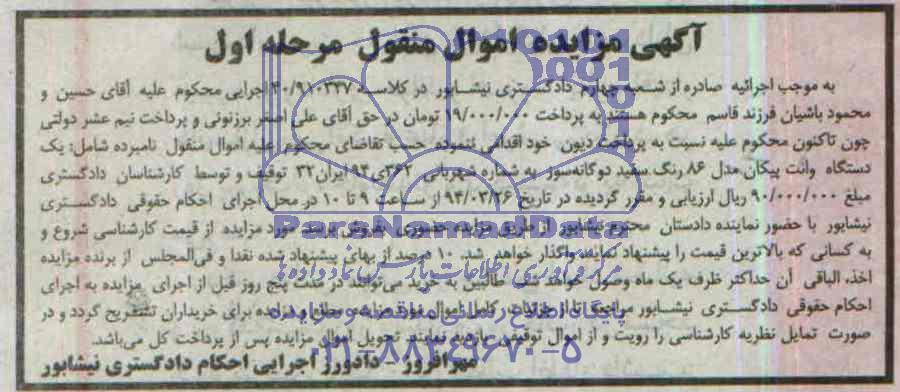 آگهی مزایده اموال منقول مرحله اول
به موجب اجرائیه صادره از شعبه چهارم دادگستری نیشابور در کلاسه ۴۰/۹۱۰۳۳۷ اجرایی محکوم علیه آقای حسین و
محمود باشیان فرزند قاسم محکوم هستند به پرداخت ۱۹/۰۰۰/۰۰۰ تومان در حق آقای علی اصغر برزنونی و پرداخت نیم عشر دولتی
چون تاکنون محکوم علیه نسبت به پرداخت دیون خود اقدامی ننموده حسب تقاضای محکوم علیه اموال منقول نامبرده شامل: یک
دستگاه وانت پیکان مدل ۸۶ رنگ سفید دوگانه‌سوز به شماره شهربانی ۳۶۲ی۹۴ ایران۳۲ توقیف و توسط کارشناسان دادگستری
مبلغ ۹۰/۰۰۰/۰۰۰ ریال ارزیابی و مقرر گردیده در تاریخ ۹۴/۰۳/۲۶ از ساعت ۹ تا ۱۰ در محل اجرای احکام حقوقی دادگستری
نیشابور با حضور نماینده دادستان محترم نیشابور از طریق مزایده حضوری بفروش برسد مورد مزایده از قیمت کارشناسی شروع و
به کسانی که بالاترین قیمت را پیشنهاد نمایند واگذار خواهد شد. ۱۰ درصد از بهای پیشنهاد شده نقدا و فی‌المجلس از برنده مزایده
اخذ، الباقی آن حداکثر ظرف یک ماه وصول خواهد شد. طالبین به خرید می‌توانند در مدت پنج روز قبل از اجرای مزایده به اجرای
احکام حقوقی دادگستری نیشابور مراجعه تا از جزئیات کامل اموال مورد مزایده مطلع و برنده برای خریداران تشریح گردد و در
صورت تمایل نظریه کارشناسی را رویت و از اموال توقیفی بازدید نمایند. تحویل اموال مزایده پس از پرداخت کل می‌باشد.
مهرافروز - دادورز اجرایی احکام دادگستری نیشابور
ParsNamadData
مرکز فرآوری اطلاعات پارس نماد داده‌ها
پایگاه اطلاع رسانی مناقصه و مزایده
۰۲۱-۸۸۳۴۹۶۷۰-۵